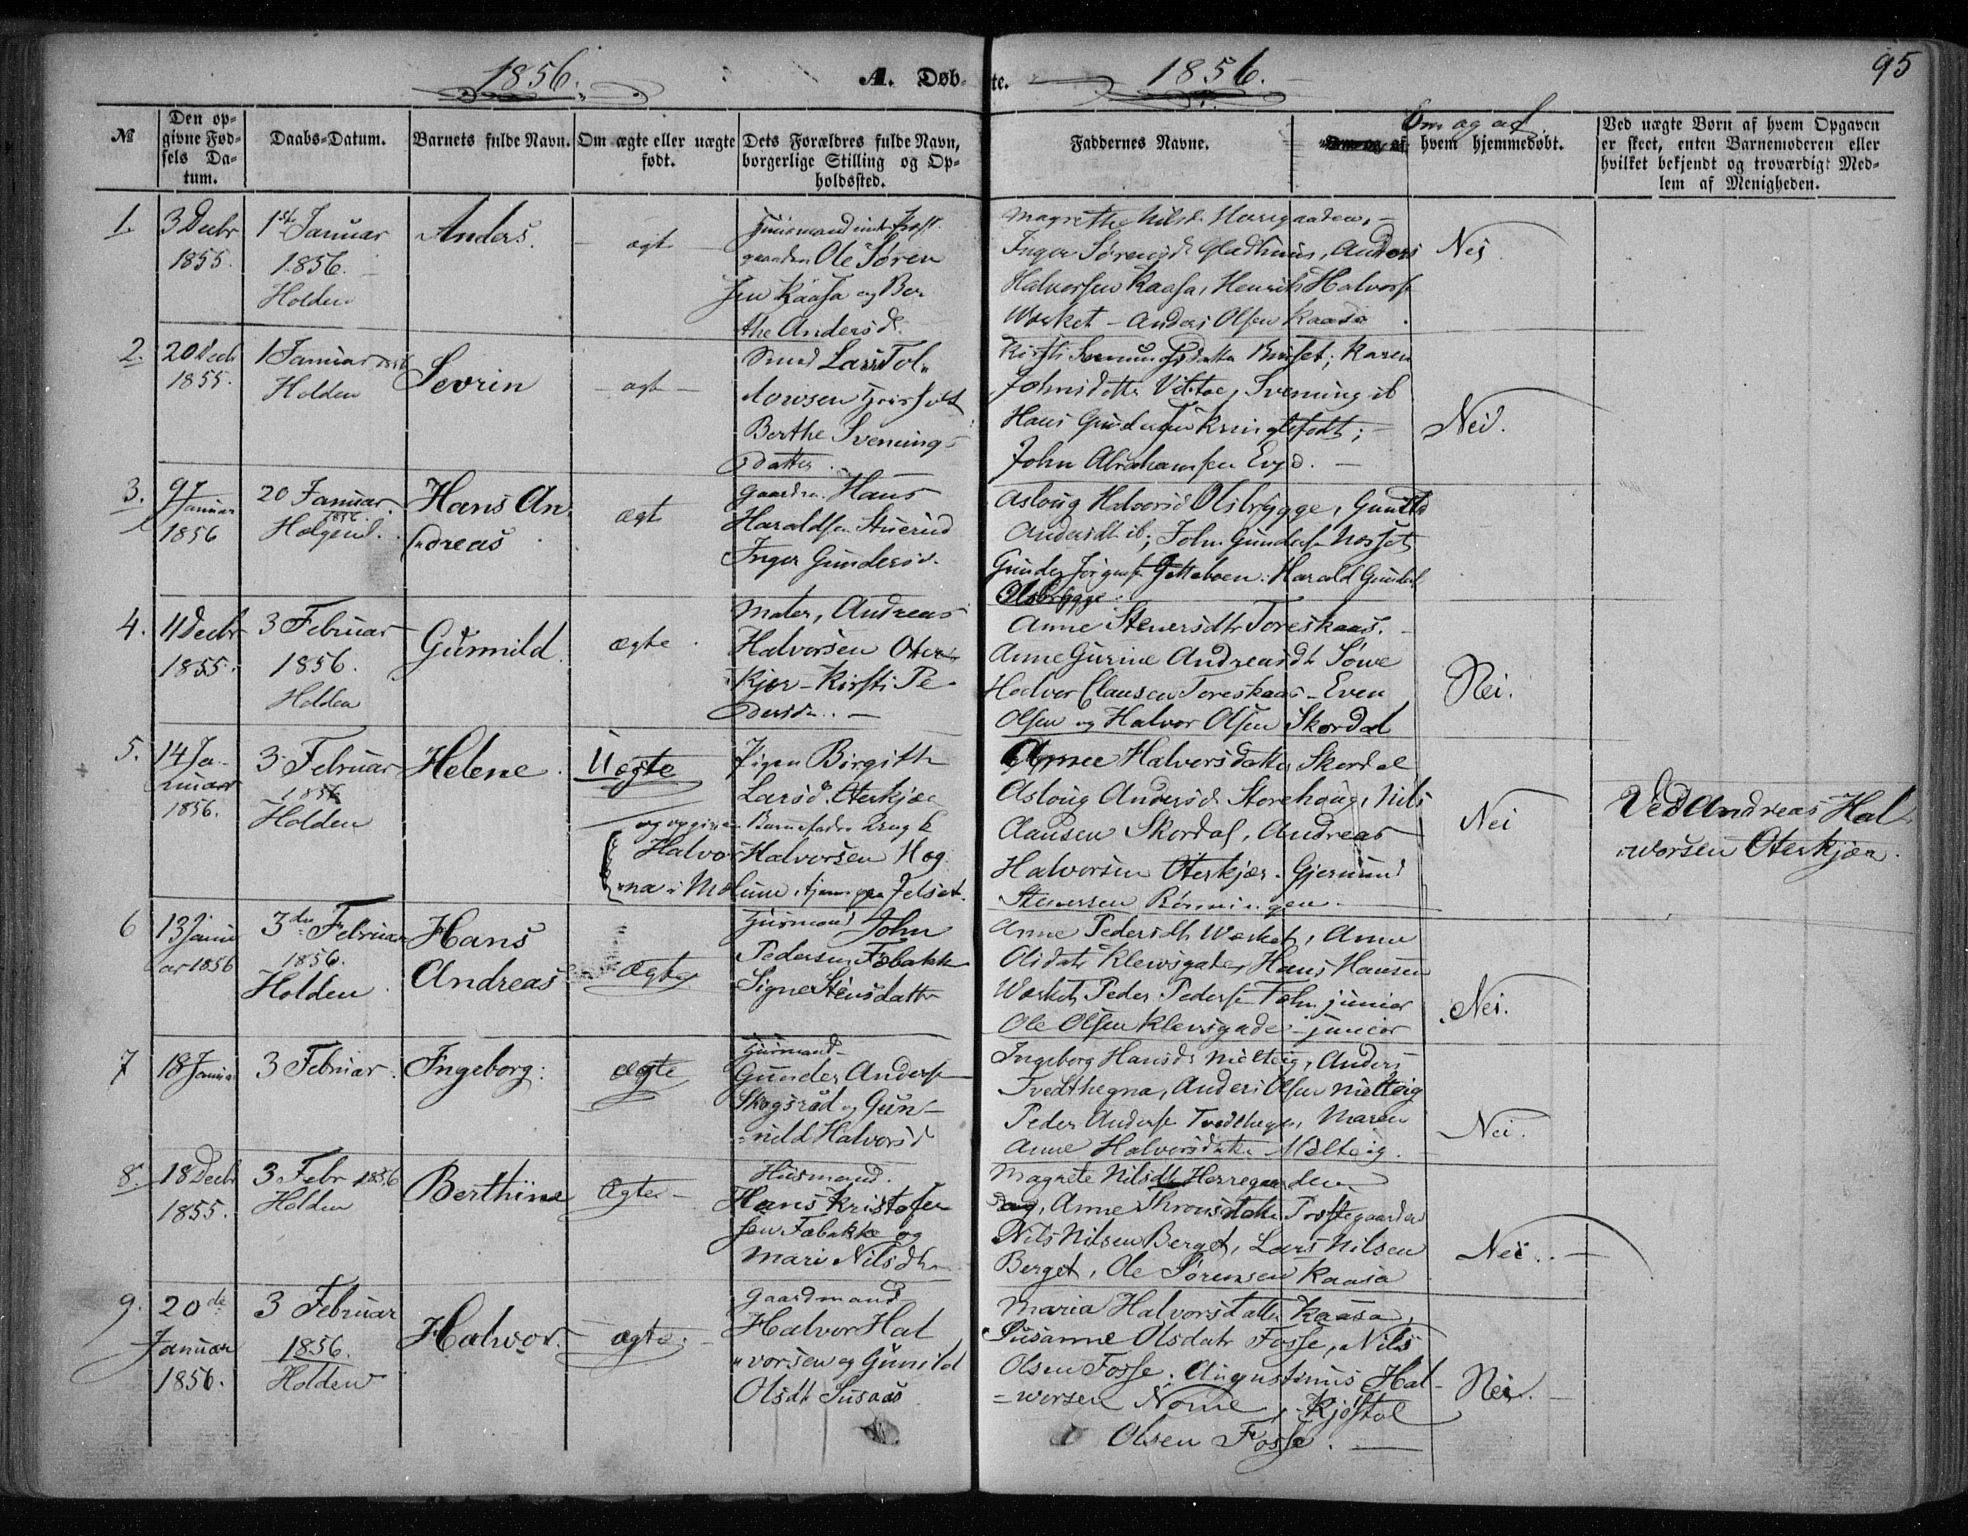 1856.
A. Døb-
te.
1856.
95
№
Den op-
givne Fød-
sels Da-
tum.
Daabs-Datum.
Barnets fulde Navn.
Om ægte eller uægte
født.
Dets Forældres fulde Navn,
borgerlige Stilling og Op-
holdssted.
Faddernes Navne.
Om og af
hvem hjemmedøbt.
Ved uægte Børn af hvem Opgaven
er skeet, enten Barnemoderen eller
hvilket bekjendt og troværdigt Med-
lem af Menigheden.
1.
3 Decbr
1855.
1ste Januar
1856.
Holden
Anders.
ægte
Ole Sören
sen Kaasa og Ber
the Andersd.
Magrethe Nilsd. Herregaarden,
Inger Sörensd. Gladhuus, Anders
Halvorsen Kaasa, Henrik Halvors
Værket - Anders Olsen Kaasa
Nei
2.
20 Decbr
1855.
1 Januar 1856
Holden
Sevrin
ægte
Smed Lars Tol
Berthe Svenings
datter.
Johnsdatter
Svening ib
Hans
John Abrahamsen
Nei.
3.
9 Januar
1856
20 Januar
1856
Helgen
Hans An
dreas
ægte
Gaardm. Hans
Haraldsen
Inger Gundersd.
Asloug Halvorsd Olsbrygge, Gunild
Andersdt ib; John Gunders
Gunder Harald Gunders
Olsbrygge.
4.
11 Decbr
1855.
3 Februar
1856.
Holden
Gunnild
ægte
Andreas
Halvorsen Oter
kjær - Kirsti Pe
dersdr. -
Anne Stenersdtr Toreskaas.
Anne Gurine Andreasdt Söve
Halvor Clausen Toreskaas - Even
Olsen og Halvor Olsen Skordal
Nei.
5.
14 Ja
nuar
1856.
3 Februar
1856
Holden
Helene.
Uægte
Pigen Birgitte
Larsd. Oterkjær
og opgiven Barnefader Ungk
Halvor Halvorsen Høg
na i
Anne Halvorsdatter Skordal
Asloug Andersd. Storehoug, Nils
Clausen Skordal, Andreas
Halvorsen Oterkjær. Gjermund
Stenersen Rönningen
Nei
Ved Andreas Hal
vorsen Oterkjær.
6
13 Janu
ar 1856
3die Februar
1856.
Holden
Hans
Andreas
Ægte
Husmand John
Pedersen Febakke
Signe Stensdatter
Anne Pedersdt Værket, Anne
Olsdatr Klevsgade, Hans Hansen
Værket, Peder Pederse junior
Ole Olsen Klevsgade junior
Nei.
7
18 Januar
3 Februar.
Ingeborg:
Ægte
Husmand
Gunder Anderse
Skogsrød og Gun
nild Halvorsd
Ingeborg Hansd: Mælteig, Anders
Tvedthegna, Anders Olsen Mælteig
Peder Anderse Tvedthegn, Maren
Anne Halvorsdatter Mælteig.
Nei.
8.
18 Decbr
1855.
3 Febr 1856
Holden
Berthine
Ægte
Husmand.
Hans Kristofer
sen Fæbakke og
Mari Nilsdtr
Magrete Nilsdt Herregaarden
Anne Thronsdatter Prestegaarden
Nils Nilsen Berget, Lars Nilsen
Berget, Ole Sörensen Kaasa
Nei.
9.
20de
Januar
1856.
3 Februar
1856.
Holden
Halvor.
ægte
Gaardmand
Halvor Hal
vorsen og Gunild
Olsdt Susaas
Maria Halvorsdatter Kaasa,
Susanne Olsdatr Fosse, Nils
Olsen Fosse, Augustinus Hal
vorsen Nome, Kjöstol
Olsen Fosse.
Nei.